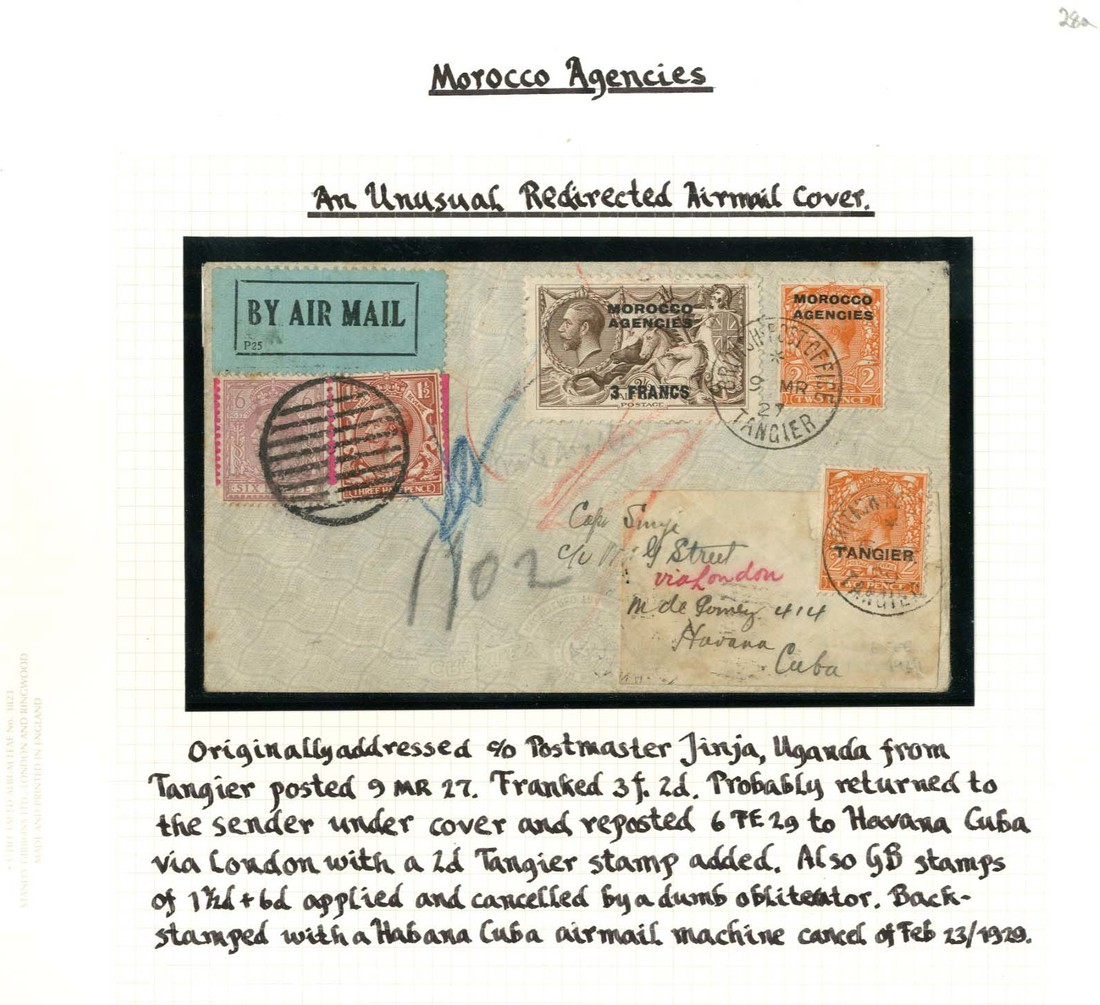 28a
Morocco Agencies
An Unusual Redirected Airmail Cover.
BY AIR MAIL
P25
MOROCCO
AGENCIES
3 FRANCS
POSTAGE
MOROCCO
AGENCIES
2 2
TWO PENCE
BRITISH POST OFFICE
9 MR
27
TANGIER
6
SIX
1½
THREE HALFPENCE
TANGIER
TANGIER
1/02
c/o Mr G Street
via London
M de Gomez 414
Havana
Cuba
Originally addressed c/o Postmaster Jinja, Uganda from
Tangier posted 9 MR 27. Franked 3f. 2d. Probably returned to
the sender under cover and reposted 6 FE 29 to Havana Cuba
via London with a 2d Tangier stamp added. Also GB stamps
of 1½d + 6d applied and cancelled by a dumb obliterator. Back-
stamped with a Habana Cuba airmail machine cancel of Feb 23/1929.
STANLEY GIBBONS LTD., LONDON AND RINGWOOD
MADE AND PRINTED IN ENGLAND